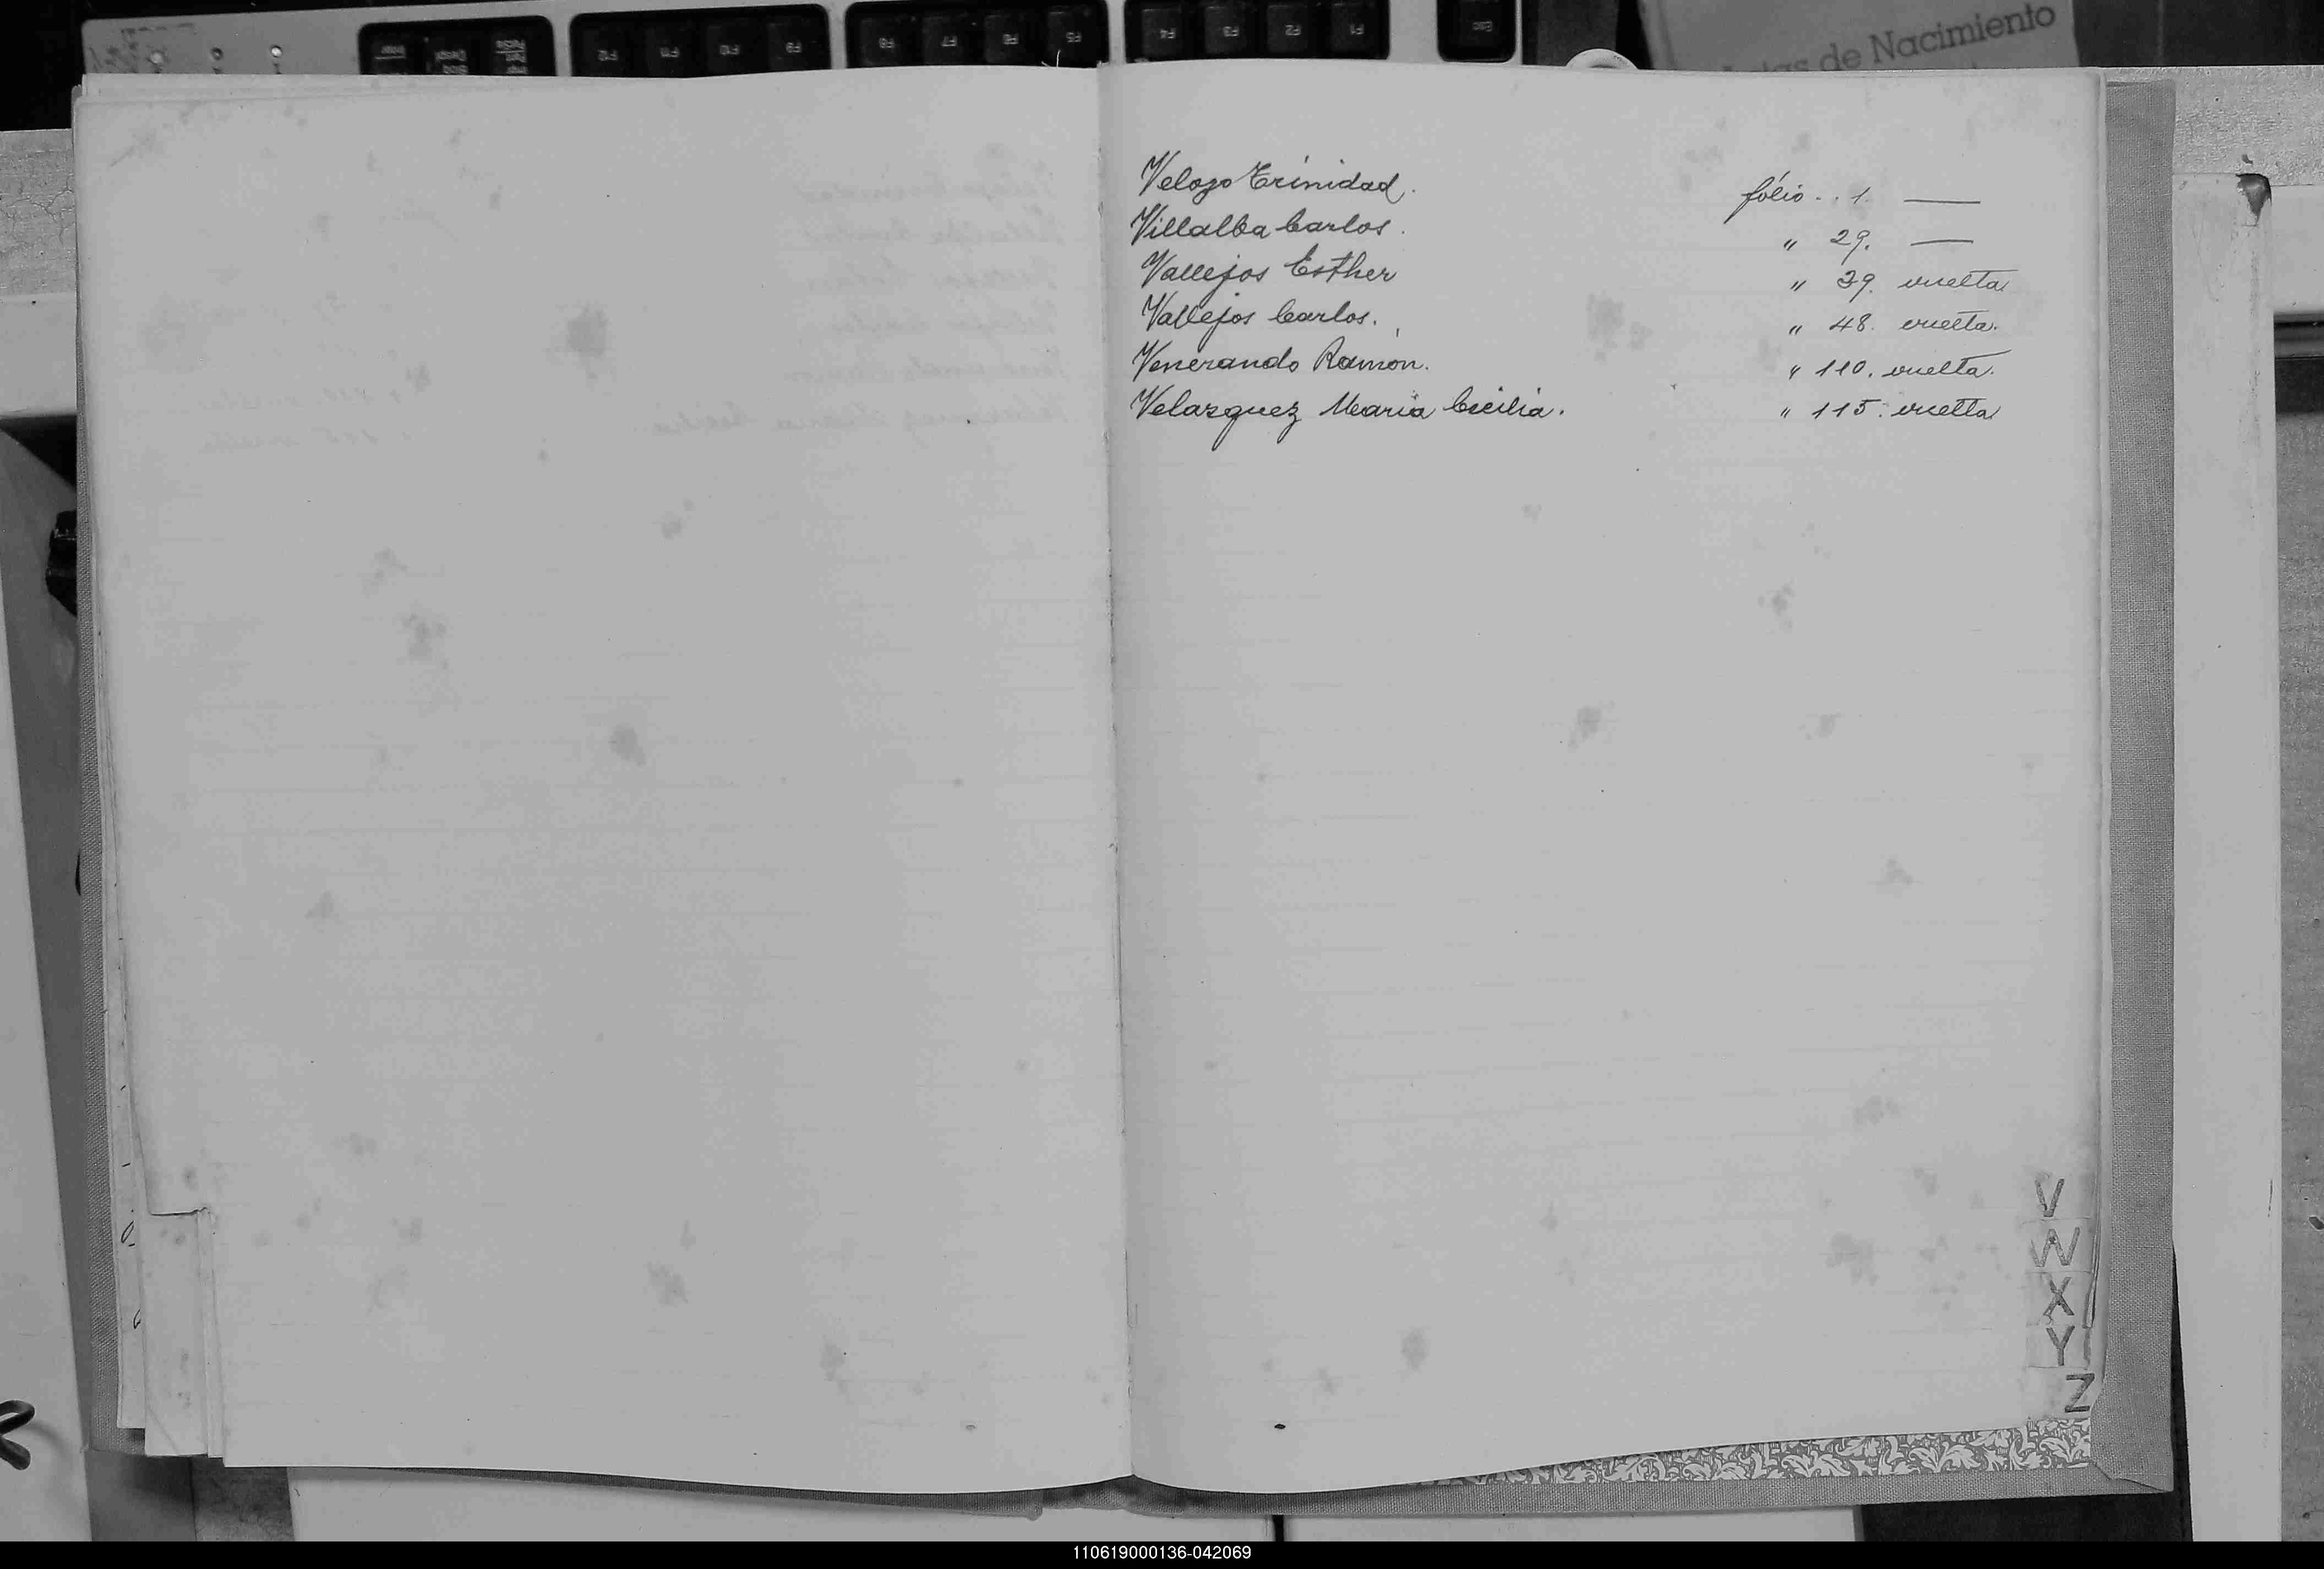 de Nacimiento
Velozo Trinidad. folio . . 1. —
Villalba Carlos. " 29. —
Vallejos Esther " 39. vuelta
Vallejos Carlos. " 48. vuelta.
Venerando Ramón. " 110. vuelta.
Velazquez Maria Cecilia. " 115. vuelta
V
W
X
Y
Z
110619000136-042069